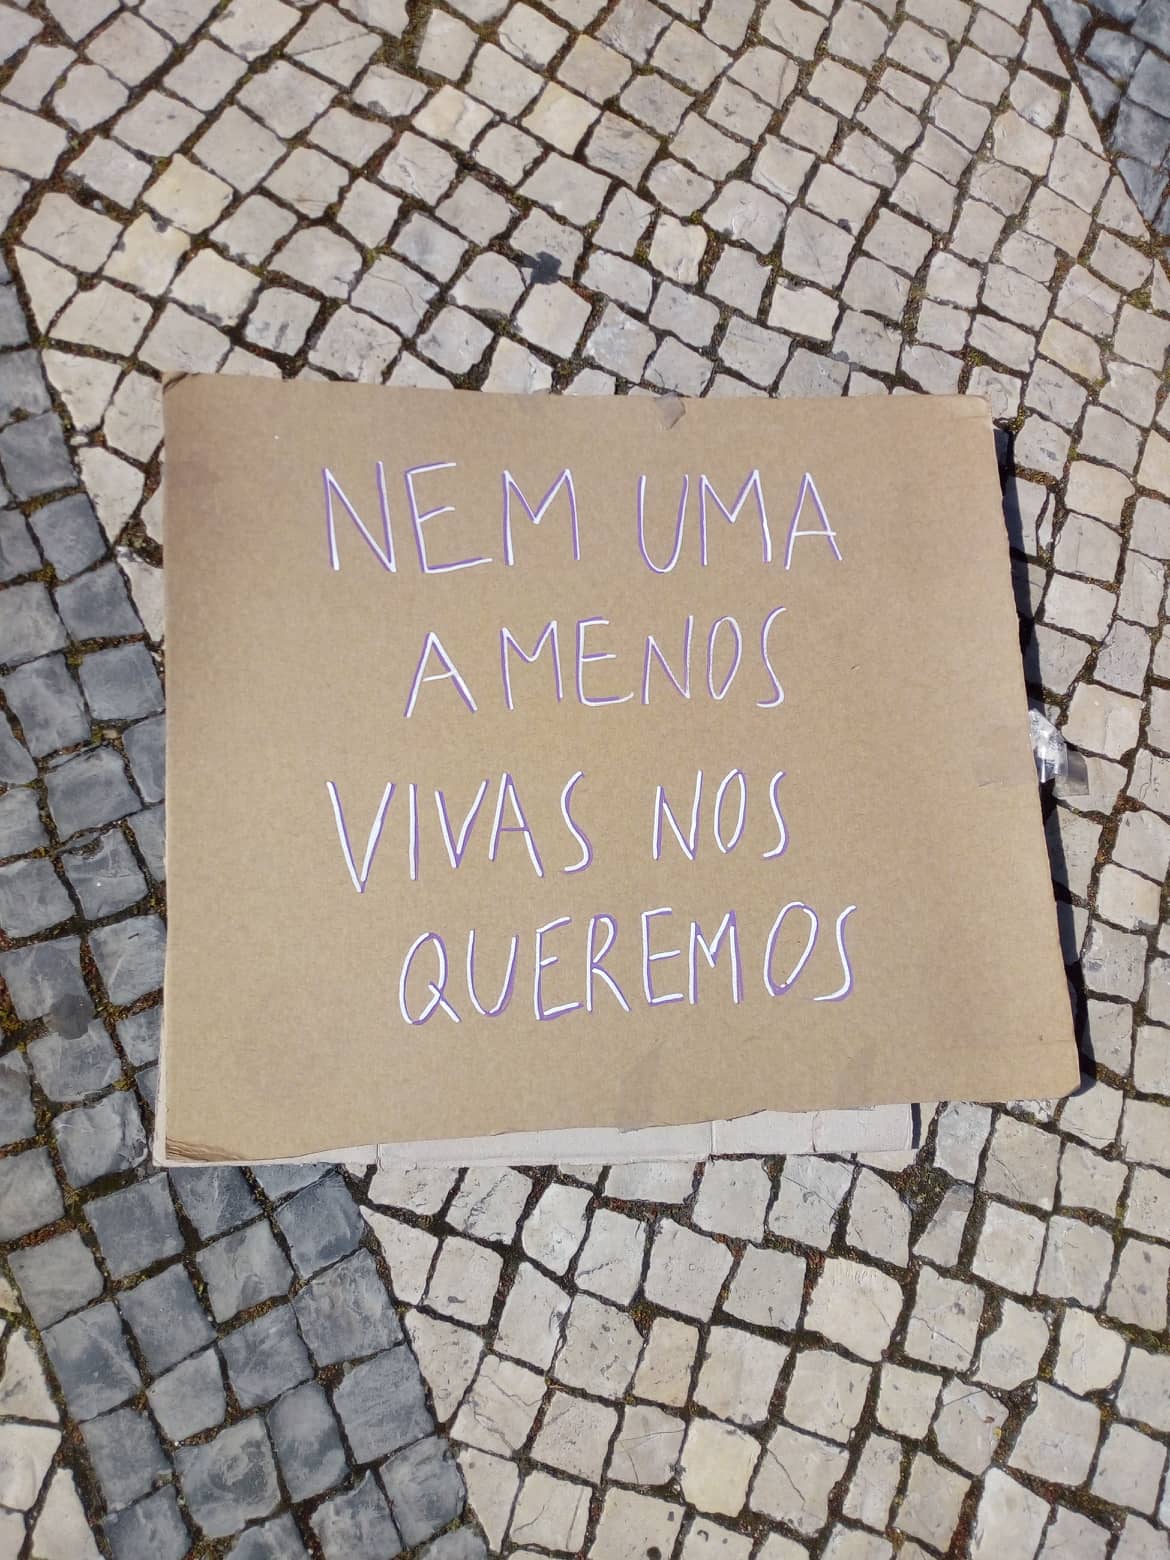 NEM UMA
A MENOS
VIVAS NOS
QUEREMOS